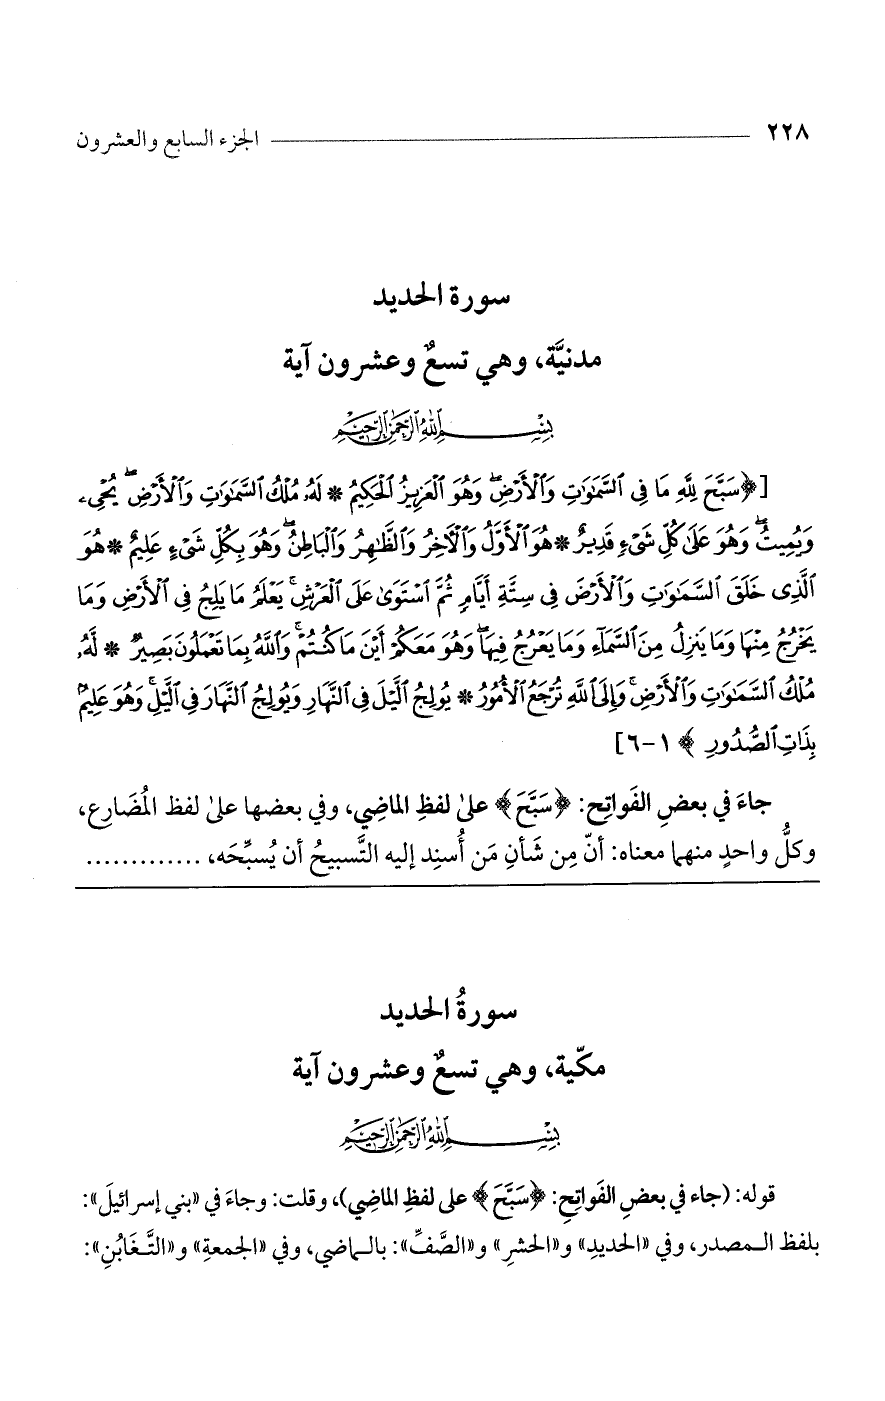 ٢٢٨ الجزء السابع والعشرون
سورة الحديد
مدنيَّة، وهي تسعٌ وعشرون آية
بِسْمِ اللَّهِ الرَّحْمَٰنِ الرَّحِيمِ
[﴿سَبَّحَ لِلَّهِ مَا فِى ٱلسَّمَٰوَٰتِ وَٱلْأَرْضِ ۖ وَهُوَ ٱلْعَزِيزُ ٱلْحَكِيمُ * لَهُۥ مُلْكُ ٱلسَّمَٰوَٰتِ وَٱلْأَرْضِ ۖ يُحْىِۦ
وَيُمِيتُ ۖ وَهُوَ عَلَىٰ كُلِّ شَىْءٍ قَدِيرٌ * هُوَ ٱلْأَوَّلُ وَٱلْآخِرُ وَٱلظَّٰهِرُ وَٱلْبَاطِنُ ۖ وَهُوَ بِكُلِّ شَىْءٍ عَلِيمٌ * هُوَ
ٱلَّذِى خَلَقَ ٱلسَّمَٰوَٰتِ وَٱلْأَرْضَ فِى سِتَّةِ أَيَّامٍ ثُمَّ ٱسْتَوَىٰ عَلَى ٱلْعَرْشِ ۚ يَعْلَمُ مَا يَلِجُ فِى ٱلْأَرْضِ وَمَا
يَخْرُجُ مِنْهَا وَمَا يَنزِلُ مِنَ ٱلسَّمَآءِ وَمَا يَعْرُجُ فِيهَا ۖ وَهُوَ مَعَكُمْ أَيْنَ مَا كُنتُمْ ۚ وَٱللَّهُ بِمَا تَعْمَلُونَ بَصِيرٌ * لَّهُۥ
مُلْكُ ٱلسَّمَٰوَٰتِ وَٱلْأَرْضِ ۚ وَإِلَى ٱللَّهِ تُرْجَعُ ٱلْأُمُورُ * يُولِجُ ٱلَّيْلَ فِى ٱلنَّهَارِ وَيُولِجُ ٱلنَّهَارَ فِى ٱلَّيْلِ ۚ وَهُوَ عَلِيمٌۢ
بِذَاتِ ٱلصُّدُورِ﴾ ١-٦]
جاءَ في بعضِ الفَواتِح: ﴿سَبَّحَ﴾ علىٰ لفظِ الماضِي، وفي بعضها علىٰ لفظ المُضَارِع،
وكلُّ واحدٍ منهما معناه: أنّ مِن شَأنِ مَن أُسنِد إليه التَّسبيحُ أن يُسبِّحَه، .............
سورةُ الحديد
مكّية، وهي تسعٌ وعشرون آية
بِسْمِ اللَّهِ الرَّحْمَٰنِ الرَّحِيمِ
قوله: (جاء في بعضِ الفَواتِحِ: ﴿سَبَّحَ﴾ على لفظِ الماضِي)، وقلت: وجاءَ في «بني إسرائيلَ»:
بلفظ المصدر، وفي «الحديدِ» و«الحشرِ» و«الصَّفِّ»: بالماضي، وفي «الجمعةِ» و«التَّغَابُنِ»: